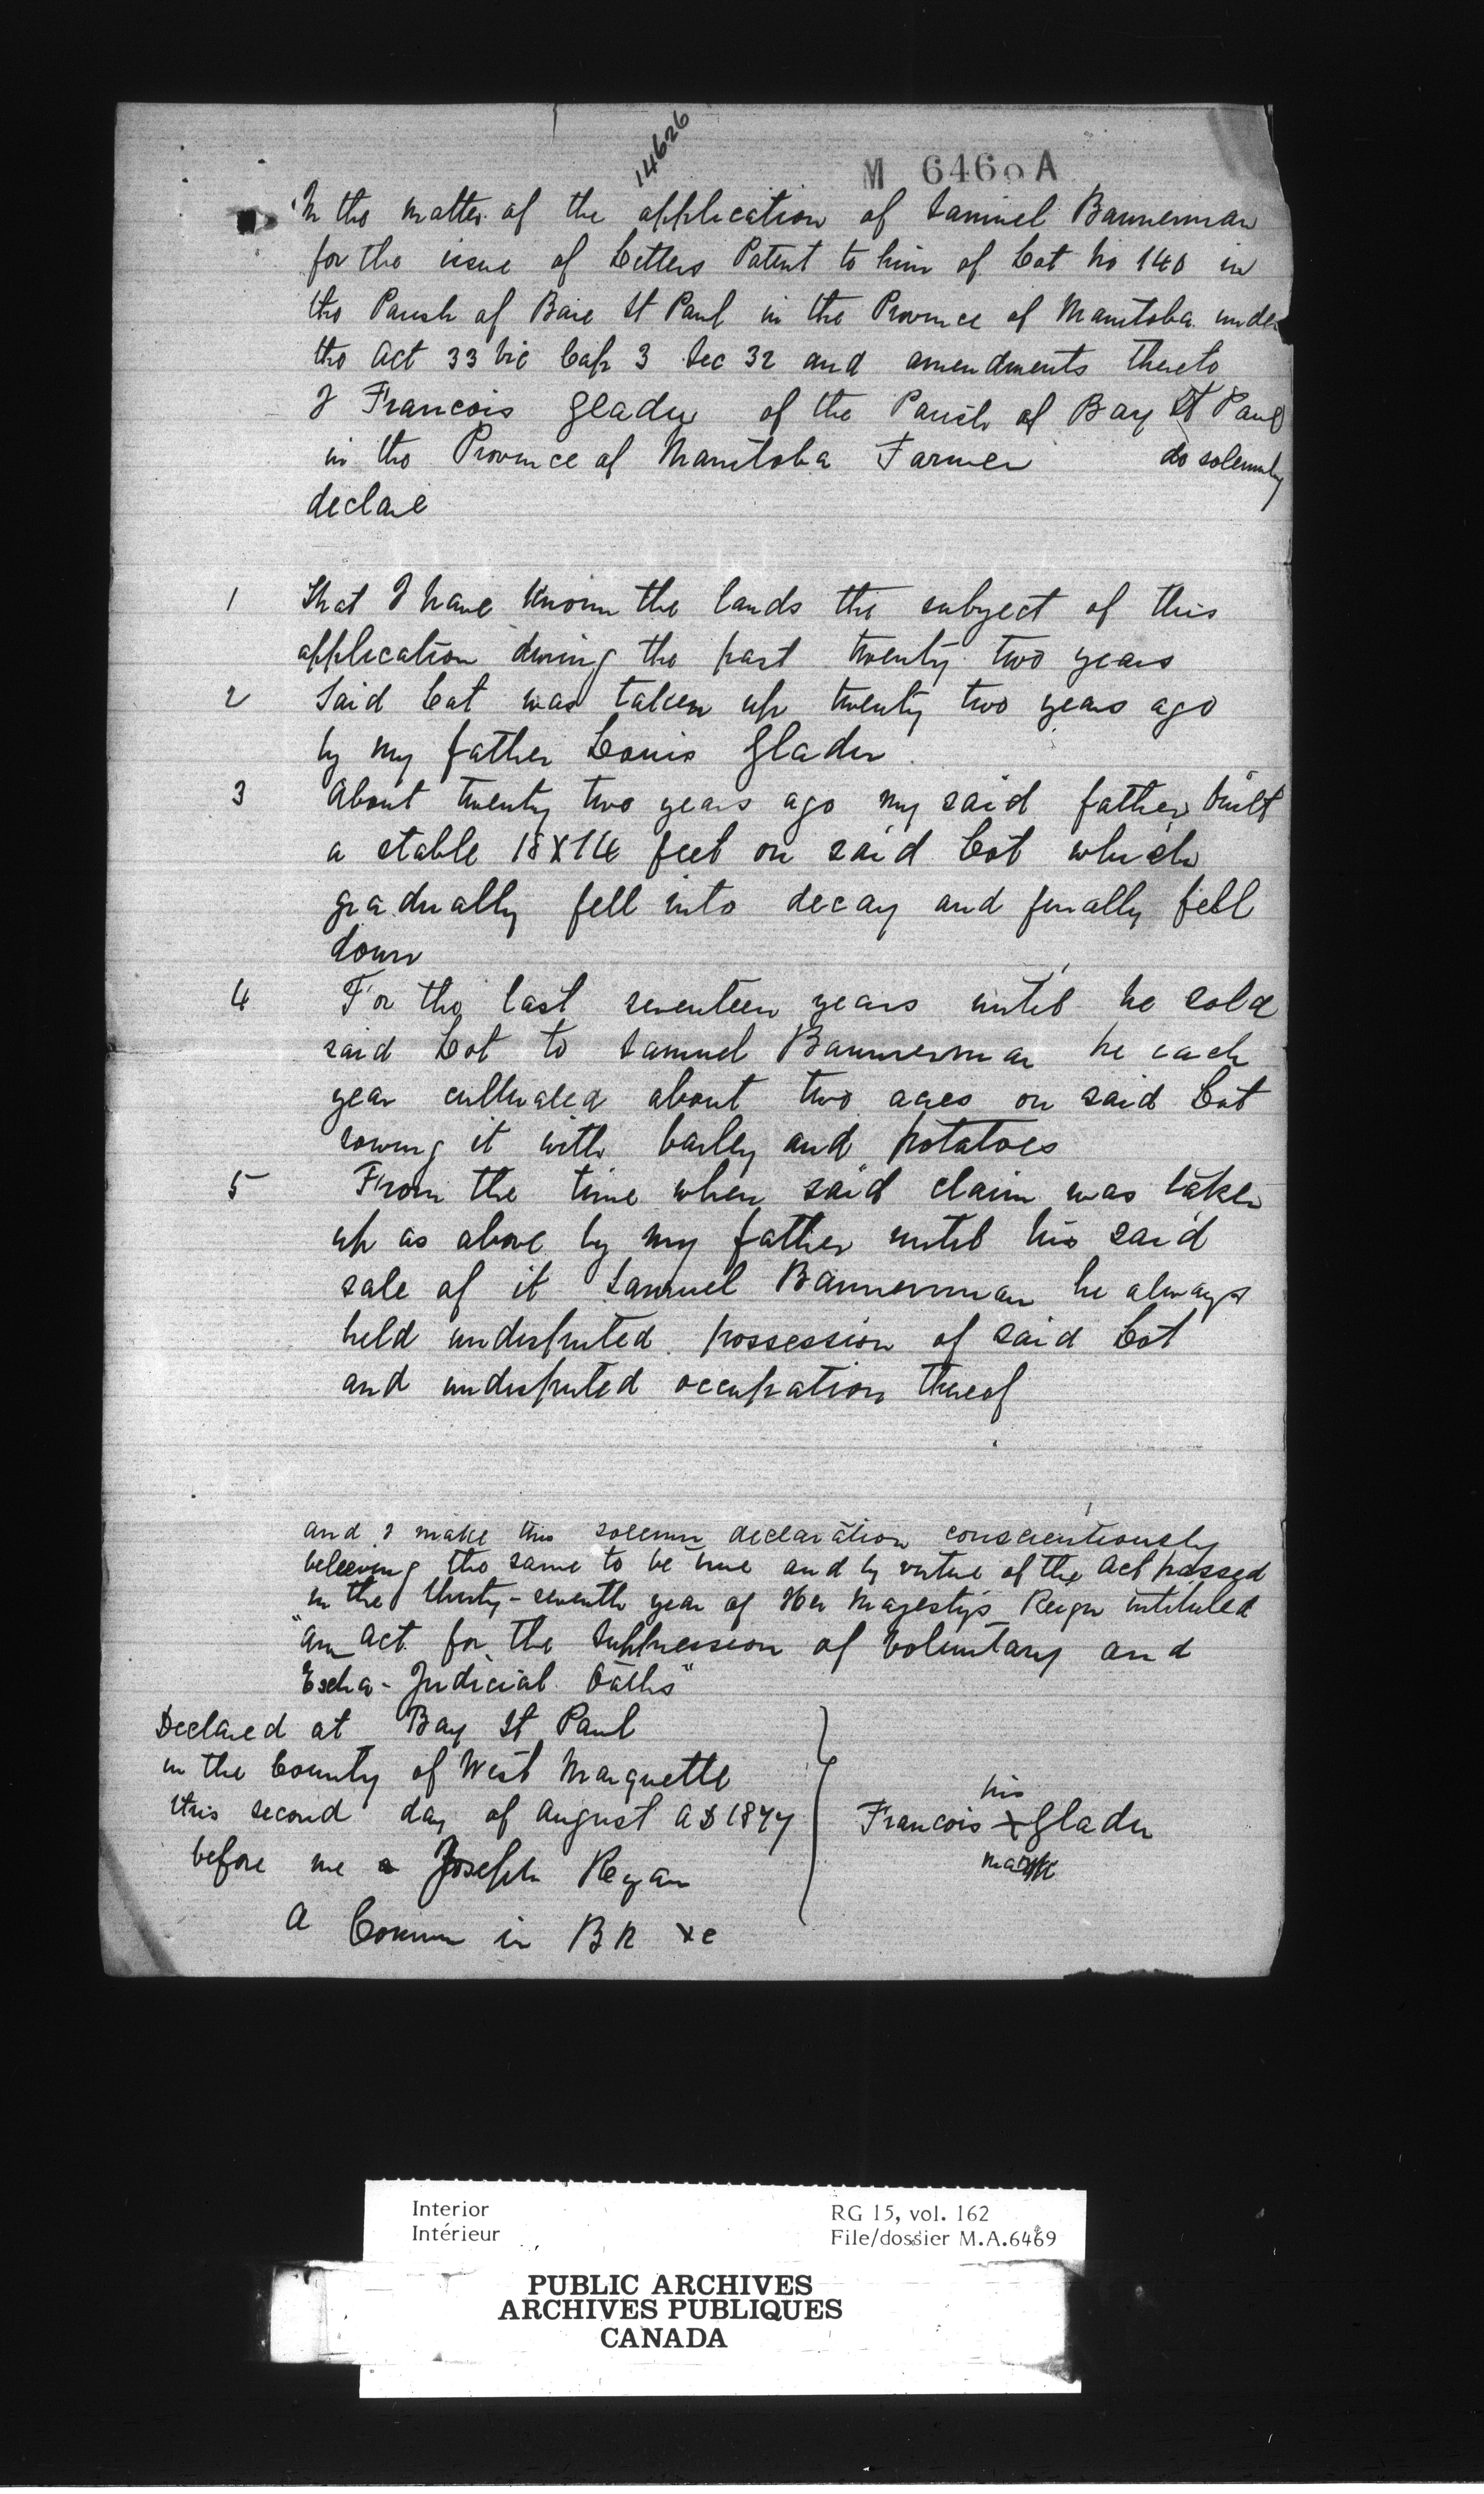 14626
M 6469 A
In the matter of the application of Samuel Bannerman
for the issue of Letters Patent to him of Lot No 140 in
the Parish of Baie St Paul in the Province of Manitoba under
the Act 33 Vic Cap 3 Sec 32 and amendments thereto
I Francois Gladu of the Parish of Bay St Paul
in the Province of Manitoba Farmer do solemnly
declare
1 That I have known the lands the subject of this
application during the past twenty two years
2 Said Lot was taken up twenty two years ago
by my father Louis Gladu
3 About twenty two years ago my said father built
a stable 18X14 feet on said Lot which
gradually fell into decay and finally fell
down
4 For the last seventeen years until he sold
said Lot to Samuel Bannerman he each
year cultivated about two acres on said Lot
sowing it with barley and potatoes
5 From the time when said claim was taken
up as above by my father until his said
sale of it Samuel Bannerman he always
held undisputed possession of said Lot
and undisputed occupation thereof
and I make this solemn declaration conscientiously
beleeving the same to be true and by virtue of the Act passed
in the thirty-seventh year of Her Majesty's Reign intituled
"An Act for the Suppression of Voluntary and
Extra-Judicial Oaths"
Declared at Bay St Paul
in the County of West Marquette
this second day of August AD 1877
before me Joseph Regan
A Comm in BR &c
his
Francois X Gladu
mark
Interior RG 15, vol. 162
Intérieur File/dossier M.A.6469
PUBLIC ARCHIVES
ARCHIVES PUBLIQUES
CANADA